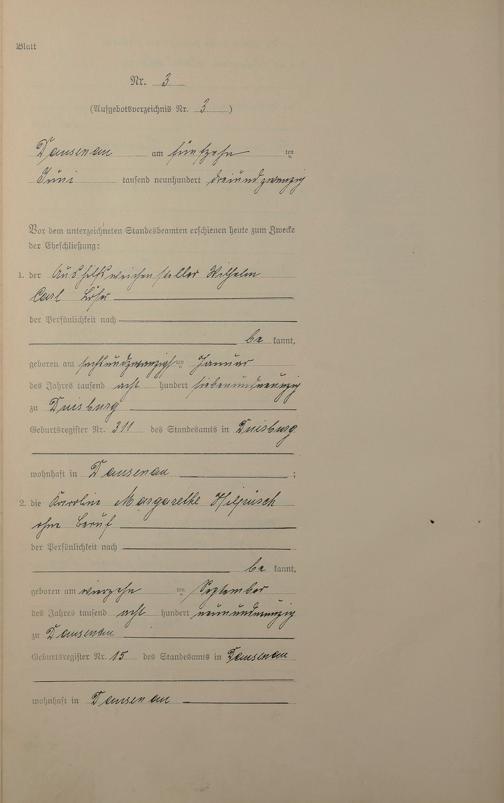 Blatt
Nr. 3
(Aufgebotsverzeichnis Nr. 3)
Dausenau am fünfzehn ten
Juni tausend neunhundert dreiundzwanzig
Vor dem unterzeichneten Standesbeamten erschienen heute zum Zwecke
der Eheschließung:
1. der Aushilfsweichensteller Wilhelm
Carl
der Persönlichkeit nach
be kannt,
geboren am sechsundzwanzigs ten Januar
des Jahres tausend acht hundert siebenundneunzig
zu Duisburg
Geburtsregister Nr. 311 des Standesamts in Duisburg
wohnhaft in Dausenau ;
2. die Karoline Margarethe
ohne Beruf
der Persönlichkeit nach
be kannt,
geboren am vierzehn ten September
des Jahres tausend acht hundert neunundneunzig
zu Dausenau
Geburtsregister Nr. 15 des Standesamts in Dausenau
wohnhaft in Dausenau